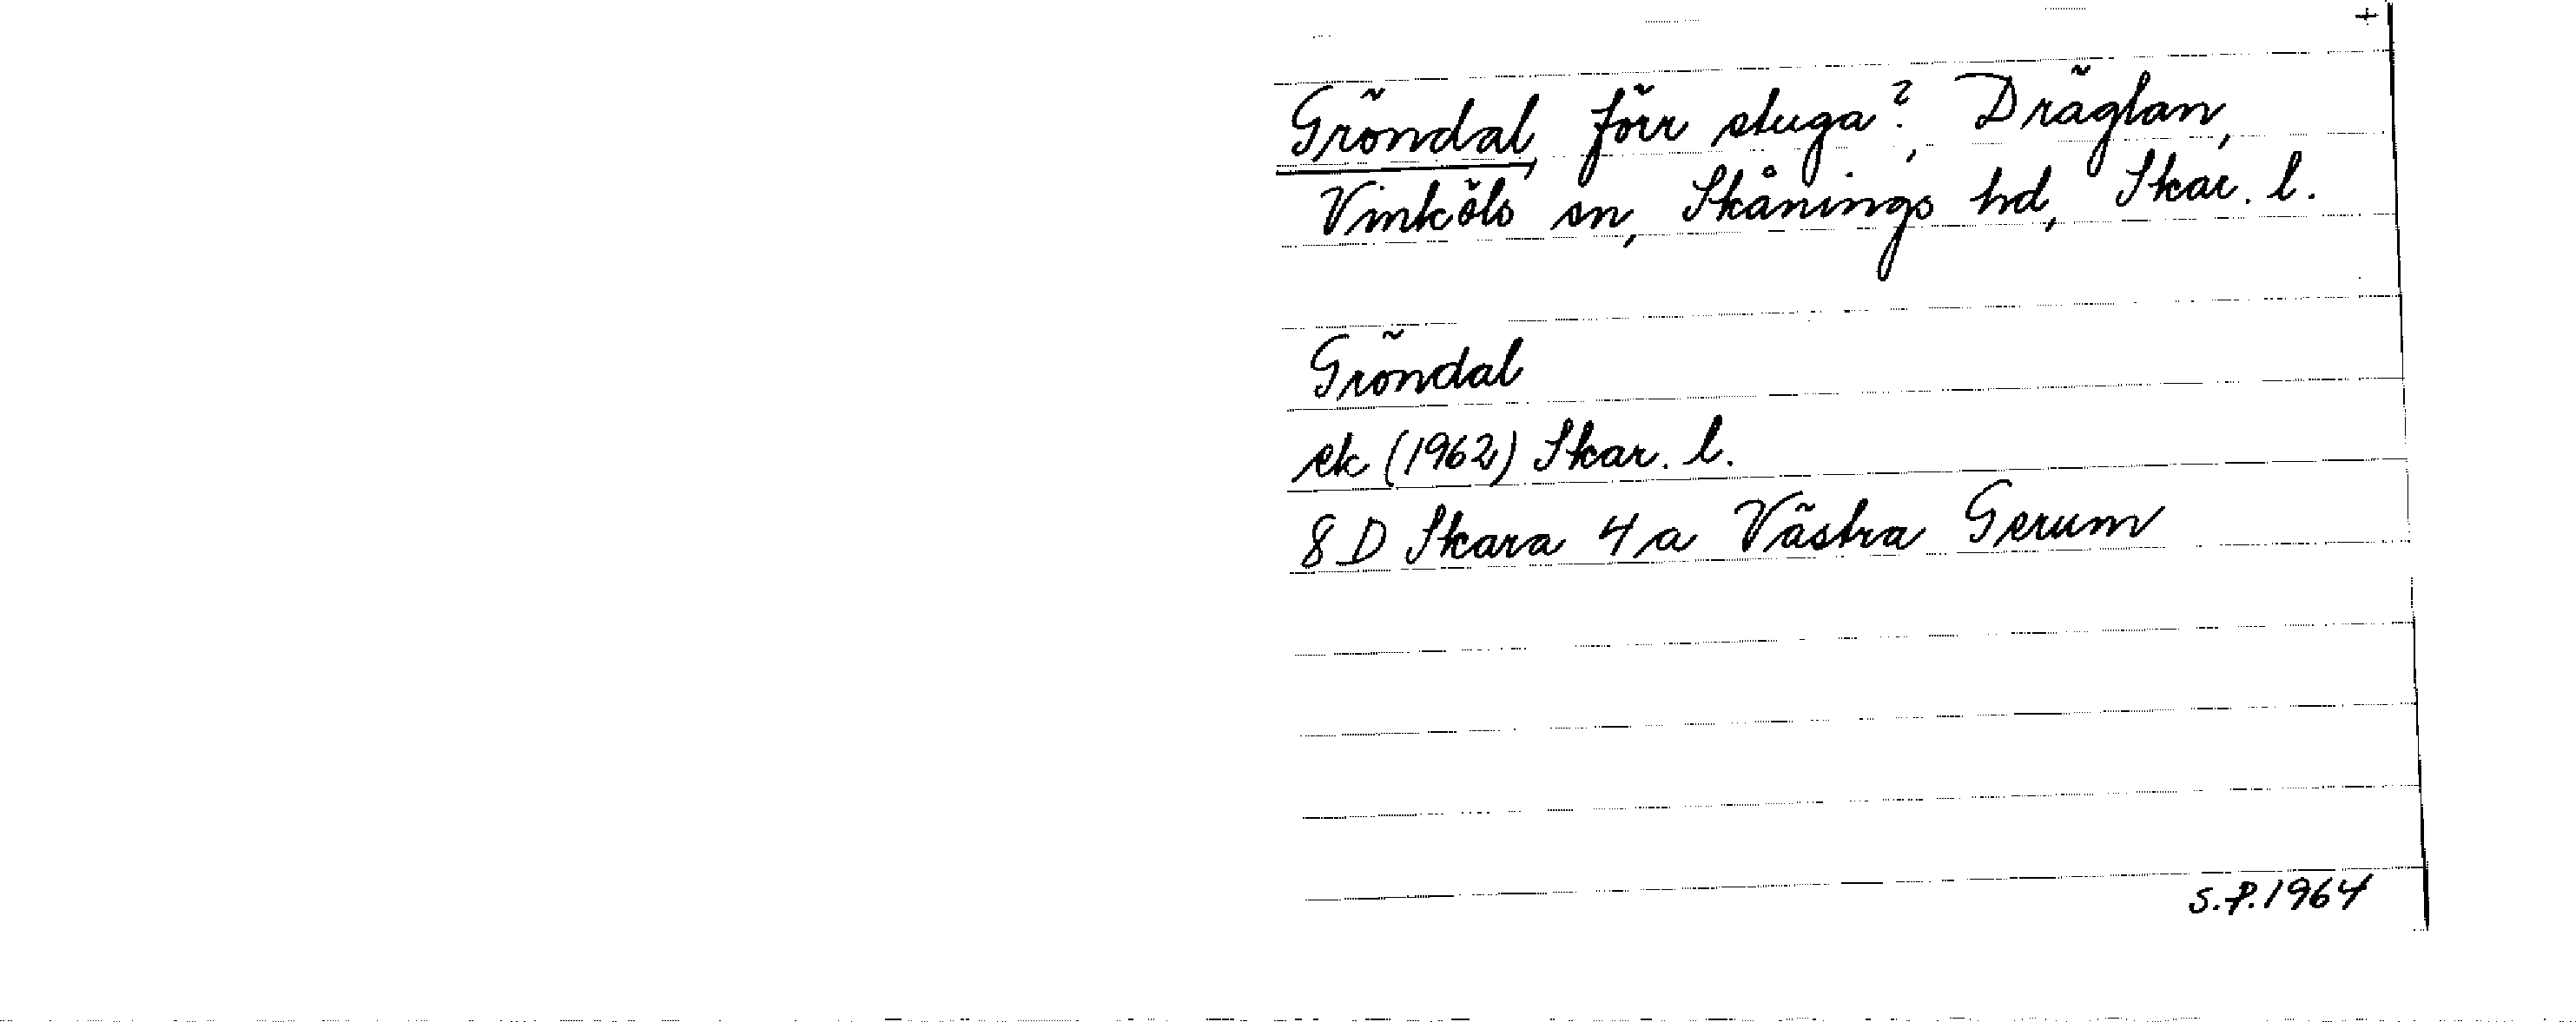 +
Gröndal, förr stuga?, Dräglan,
Vinköls sn, Skånings hd, Skar. l.
Gröndal
ek (1962) Skar. l.
8 D Skara 4 a Västra Gerum
S.P. 1964